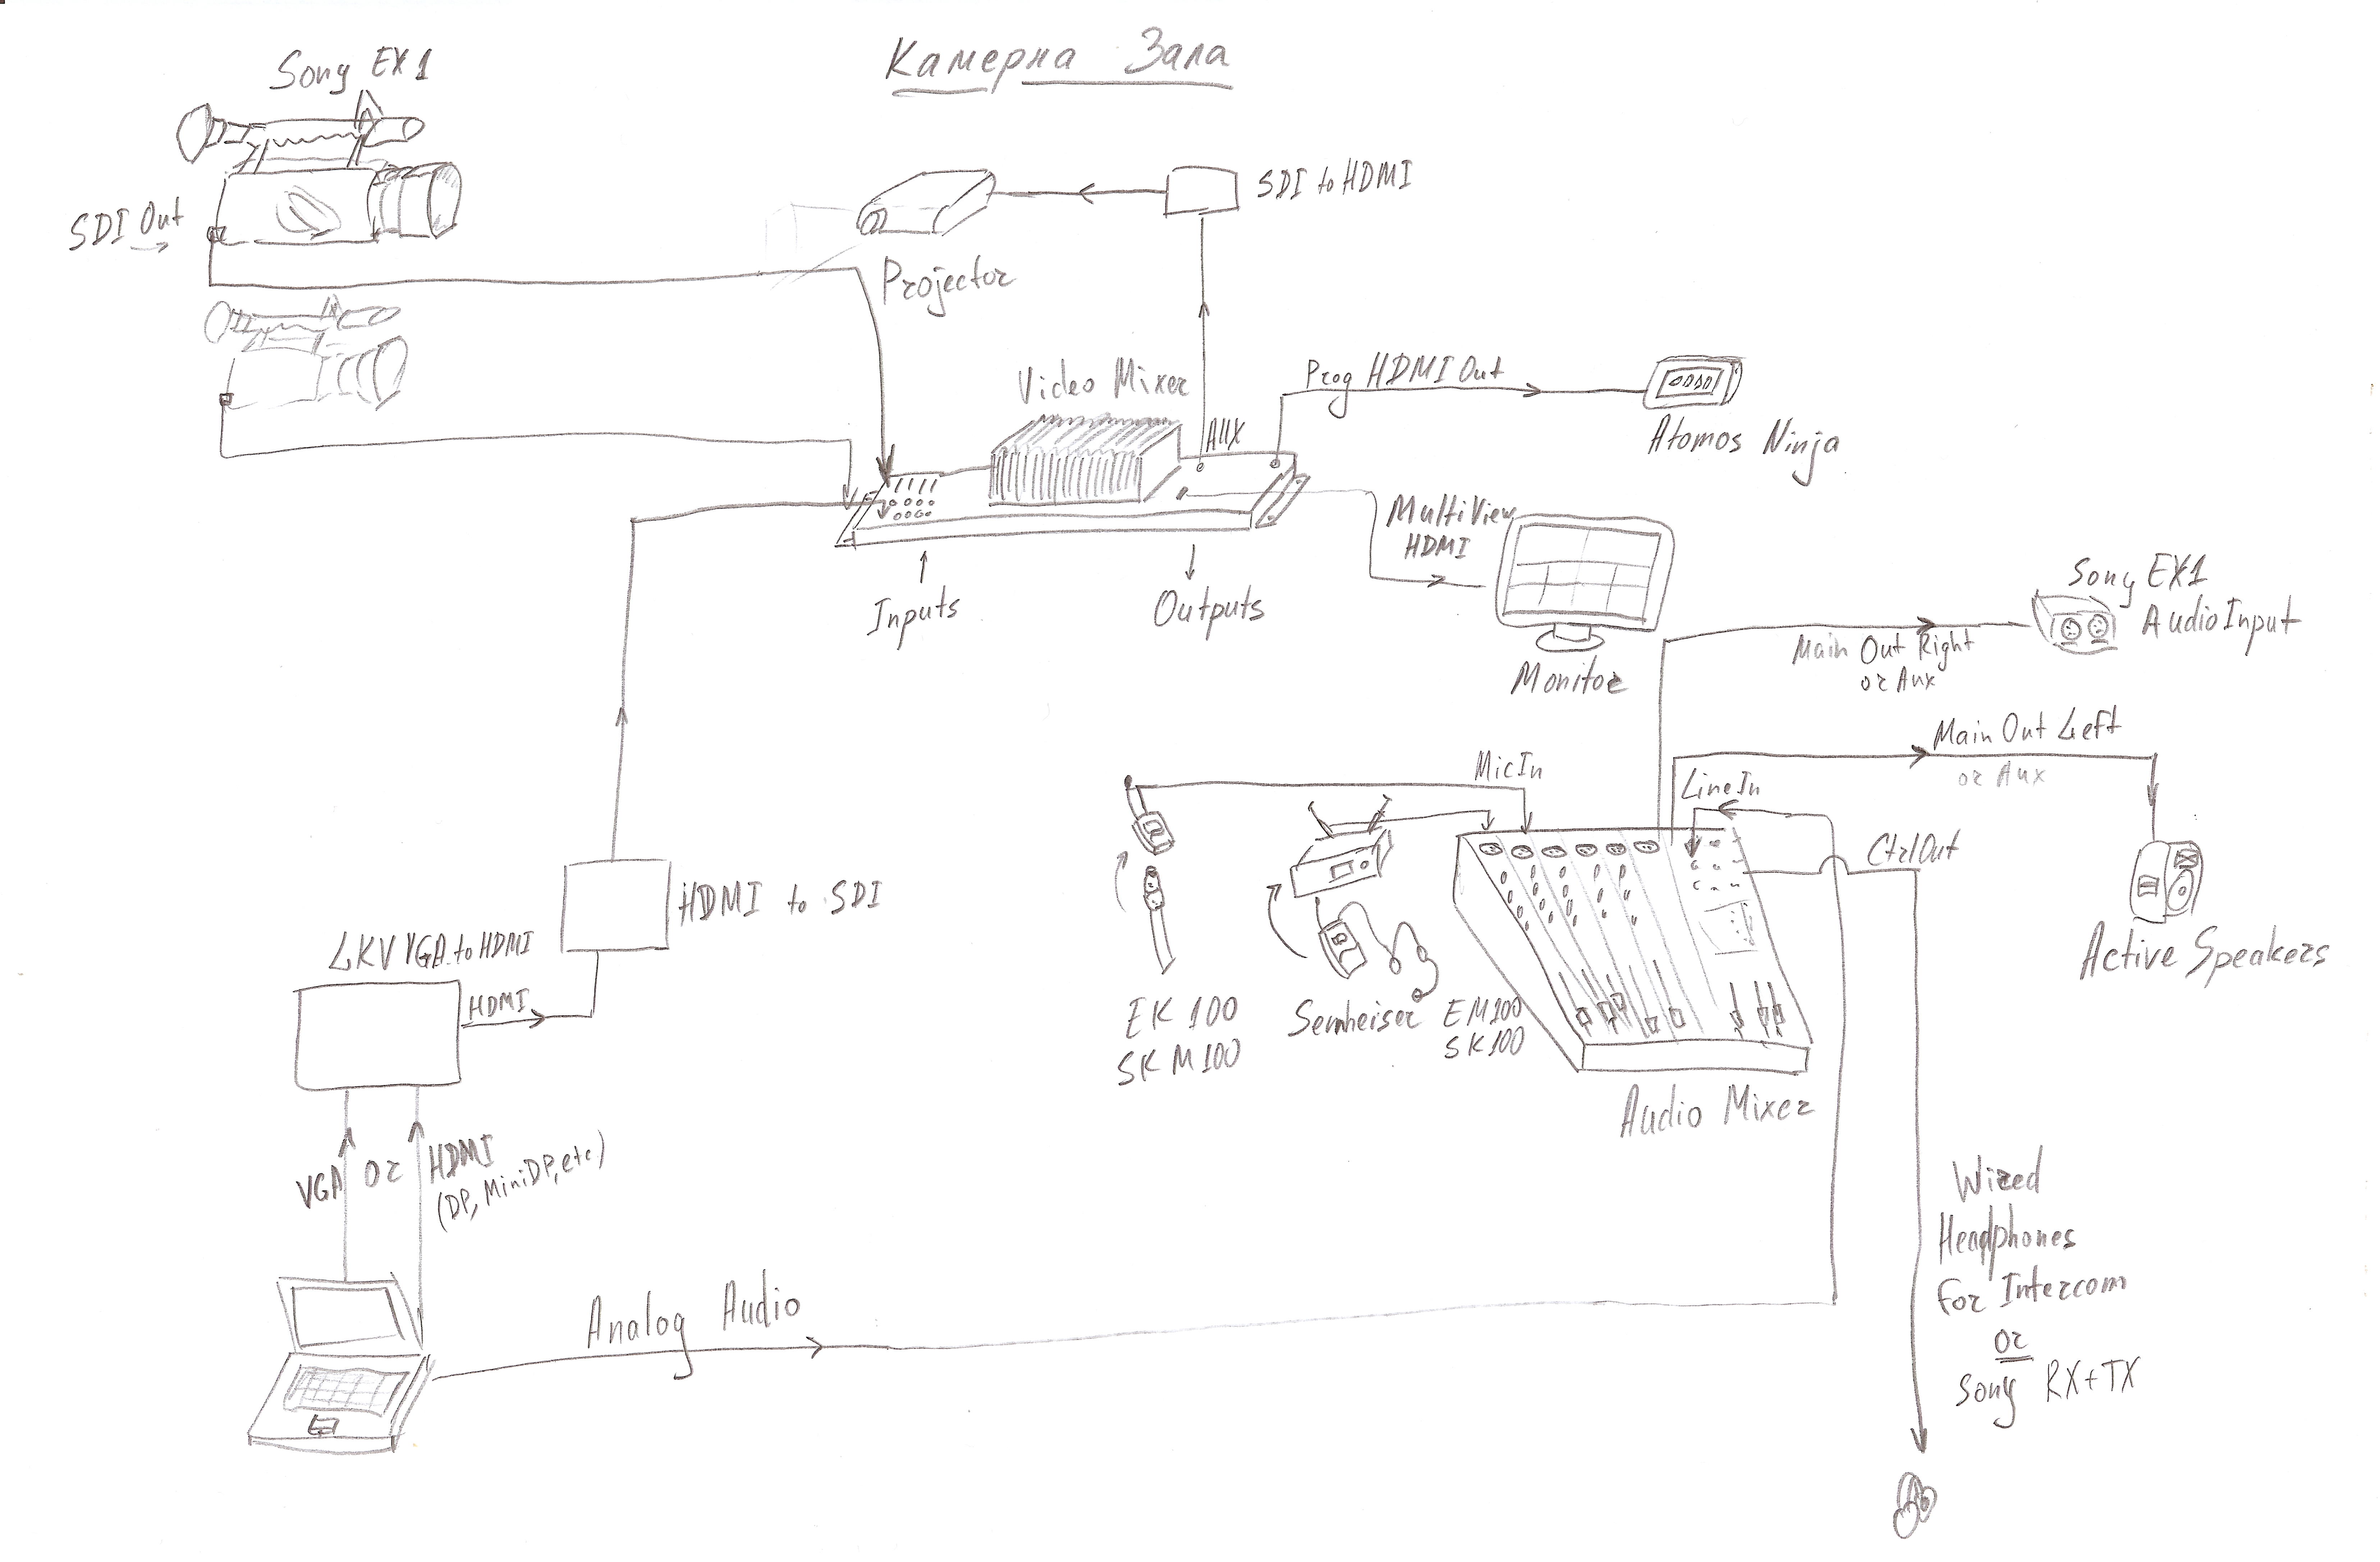 Камерна Зала
Sony EX1
SDI Out
SDI to HDMI
Projector
Video Mixer
AUX
Prog HDMI Out
Atomos Ninja
MultiView
HDMI
Monitor
Inputs
Outputs
Sony EX1
Audio Input
Main Out Right
or Aux
Main Out Left
or Aux
MicIn
LineIn
CtrlOut
Active Speakers
HDMI to SDI
LKV VGA to HDMI
HDMI
EK 100
SKM100
Sennheiser
EM100
SK100
Audio Mixer
VGA or HDMI
(DP, MiniDP, etc)
Analog Audio
Wired
Headphones
For Intercom
or
Sony RX+TX